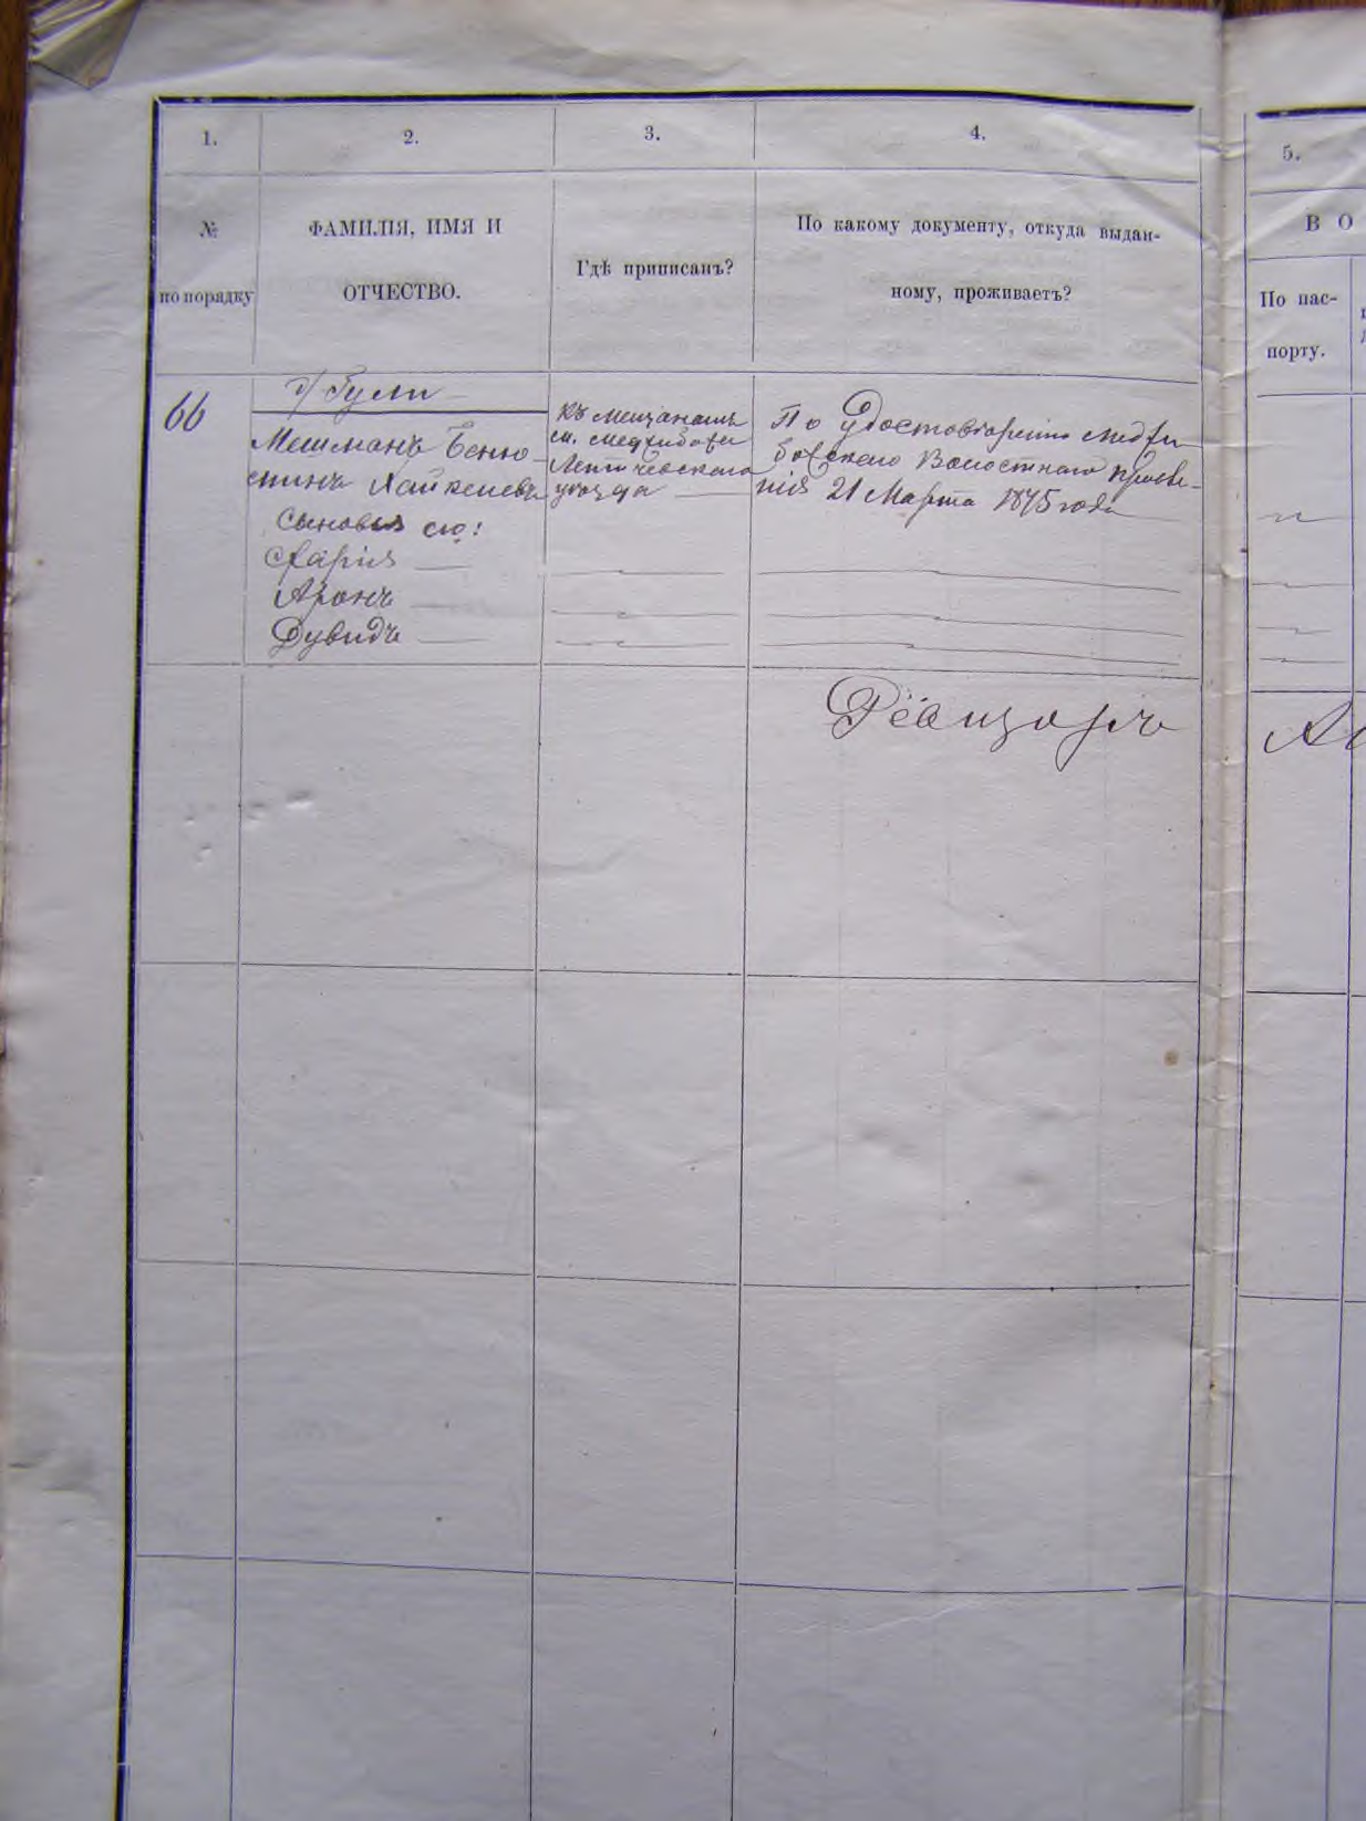 1.
2.
3.
4.
5.
№
по порядку
ФАМИЛІЯ, ИМЯ И
ОТЧЕСТВО.
Гдѣ приписанъ?
По какому документу, откуда выдан-
ному, проживаетъ?
В О
По пас-
порту.
66
Мешманъ Беню-
минъ
сыновья его:
Аронъ
Дувидъ
къ мещанамъ
м. Меджибожа
Летичевскаго
уѣзда
По Удостовѣренію Меджи
божскаго Волостнаго Правле-
нія 21 Марта 1875 года
Ревизоръ